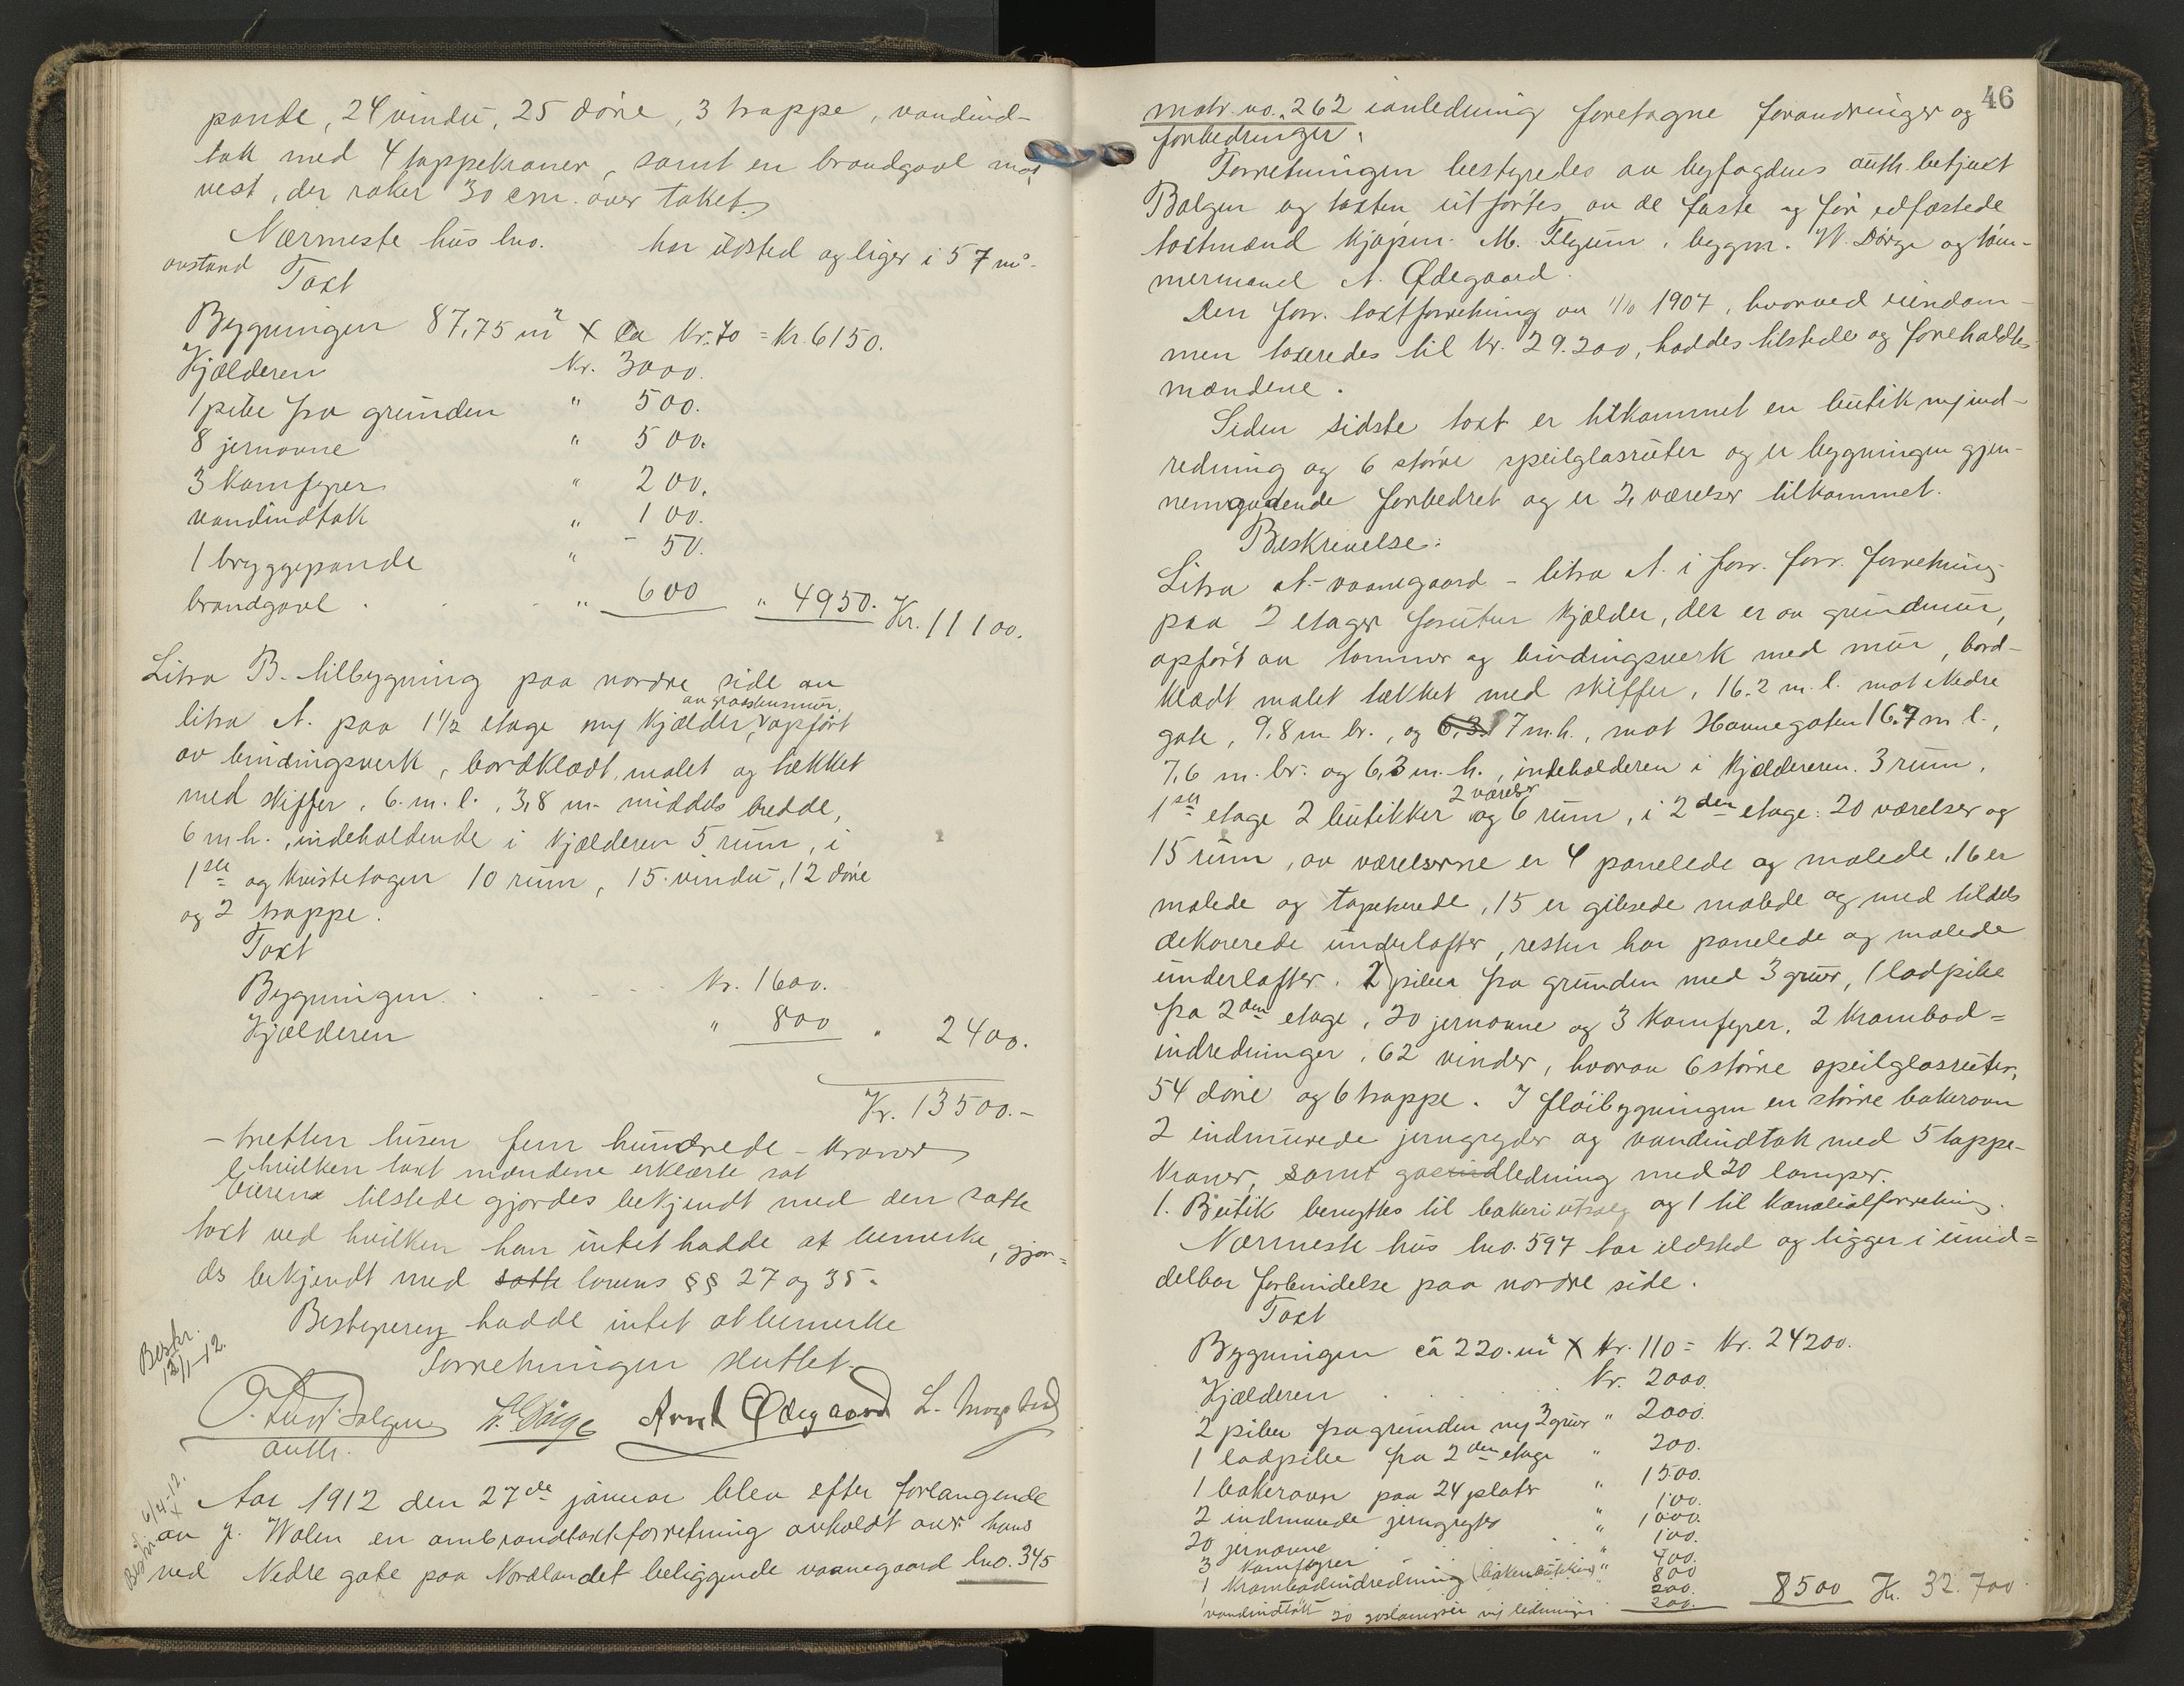 pande, 24 vindu, 25 døre, 3 trappe, vandind-
tak med 4 tappekraner, samt en brandgavl mot
vest, der raker 30 cm. over taket.
Nærmeste hus bno. har ildsted og ligger i 57 m's
avstand
Taxt
Bygningen 87,75 m² x Ca Kr. 70 = Kr. 6150.
Kjælderen Kr. 3000.
1 pibe fra grunden " 500.
8 jernovne " 500.
3 Komfyrer " 200.
vandindtak " 100.
1 bryggepande " 50.
brandgavl . " 600 " 4950. Kr. 11100.
Litra B. tilbygning paa nordre side av
litra A. paa 1 1/2 etage m/ kjælder, av graastensmur, opført
av bindingsverk, bordklædt, malet og tækket
med skiffer, 6. m. l., 3,8 m. middels bredde,
6 m h., indeholdende i kjælderen 5 rum, i
1ste og kvistetagen 10 rum, 15 vindu, 12 døre
og 2 trappe.
Taxt
Bygningen . . . Kr. 1600.
Kjælderen " 800 " 2400.
Kr. 13500.-
- tretten tusen fem hundrede - kroner
hvilken taxt mændene erklærte sat
Eieren tilstede gjordes bekjendt med den satte
taxt ved hvilken han intet hadde at bemerke, gjor=
des bekjendt med satte lovens §§ 27 og 35.
Bestyreren hadde intet at bemerke
Forretningen sluttet.
Beskr.
12/1-12.
Balgen W. Dørge Arnt Ødegaard L.
auth.
Aar 1912 den 27de januar blev efter forlangende
av J. Wolen en ombrandtaxtforretning avholdt over hans
ved Nedre gate paa Nordlandet beliggende vaanegaard bno. 345
Beskr. 6/4-12.
46
matr. no. 262 i anledning foretagne forandringer og
forbedringer.
Forretningen bestyredes av byfogdens auth. betjent
Balgen og taxten utførtes av de faste og før edfæstede
taxtmænd kjøpm. M. Flygum, byggm. W. Dørge og tøm-
mermand A. Ødegaard.
Den forr. taxtforretning av 1/10 1907, hvorved eiendom-
men taxeredes til Kr. 29.200, haddes tilstede og foreholdtes
mændene.
Siden sidste taxt er tilkommet en butik m/ ind-
redning og 6 større speilglasruter og er bygningen gjen-
nemgaaende forbedret og er 2 værelser tilkommet.
Beskrivelse:
Litra A - vaanegaard - litra A. i forr. forr. forretning
paa 2 etager foruten kjælder, der er av grundmur,
opført av tømmer og bindingsverk med mur, bord-
klædt malet tækket med skiffer, 16.2 m. l. mot Nedre
gate, 9,8 m br., og 6,3 7 m.h., mot Havnegaten 16.7 m l.,
7,6 m. br. og 6,3 m. h., indeholderen i kjældereren. 3 rum,
1ste etage 2 butikker 2 værelser og 6 rum, i 2den etage: 20 værelser og
15 rum, av værelserne er 4 panelede og malede, 16 er
malede og tapetserede, 15 er gibsede malede og med tildels
dekorerede underlofter, resten har panelede og malede
underlofter. 2 piber fra grunden med 3 gruer, 1 ladpibe
fra 2den etage, 20 jernovne og 3 komfyrer, 2 krambod=
indredninger, 62 vinder, hvorav 6 større speilglasruter,
54 døre og 6 trappe. I fløibygningen en større bakerovn
2 indmurede jerngryder og vandindtak med 5 tappe-
kraner, samt gasindledning med 20 lamper.
1. Butik benyttes til bakeriutsalg og 1 til kolonialforretning.
Nærmeste hus bno. 597 har ildsted og ligger i umid=
delbar forbindelse paa nordre side.
Taxt
Bygningen ca 220. m² x Kr. 110 = Kr. 24200.
Kjælderen . . . Kr. 2000.
2 piber fra grunden m/ 3 gruer " 2000.
1 ladpibe fra 2den etage " 200.
1 bakerovn paa 24 plater " 1500.
2 indmurede jerngryter " 100.
20 jernovne " 1000.
3 Komfyrer " 100.
1 Krambodindredning (bakerbutikken) " 400.
800
vandindtak 200.
20 gaslamper m/ ledninger 200. 8500 Kr. 32.700